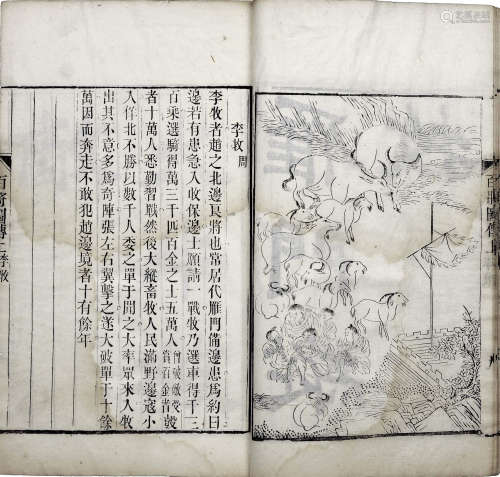 李牧周
李牧者趙之北邊良將也常居代雁門備邊患爲約曰
邊若有患急入收保邊士願請一戰牧乃選車得千三
百乘選騎得萬三千匹百金之士五萬人
者十萬人悉勤習戰然後大縱畜牧人民滿野邊寇小
入佯北不勝以數千人委之單于聞之大率眾來入牧
出其不意多爲奇陣張左右翼擊之遂大破單于十餘
萬因而奔走不敢犯趙邊境者十有餘年
百將圖傳上李牧
百將圖傳上